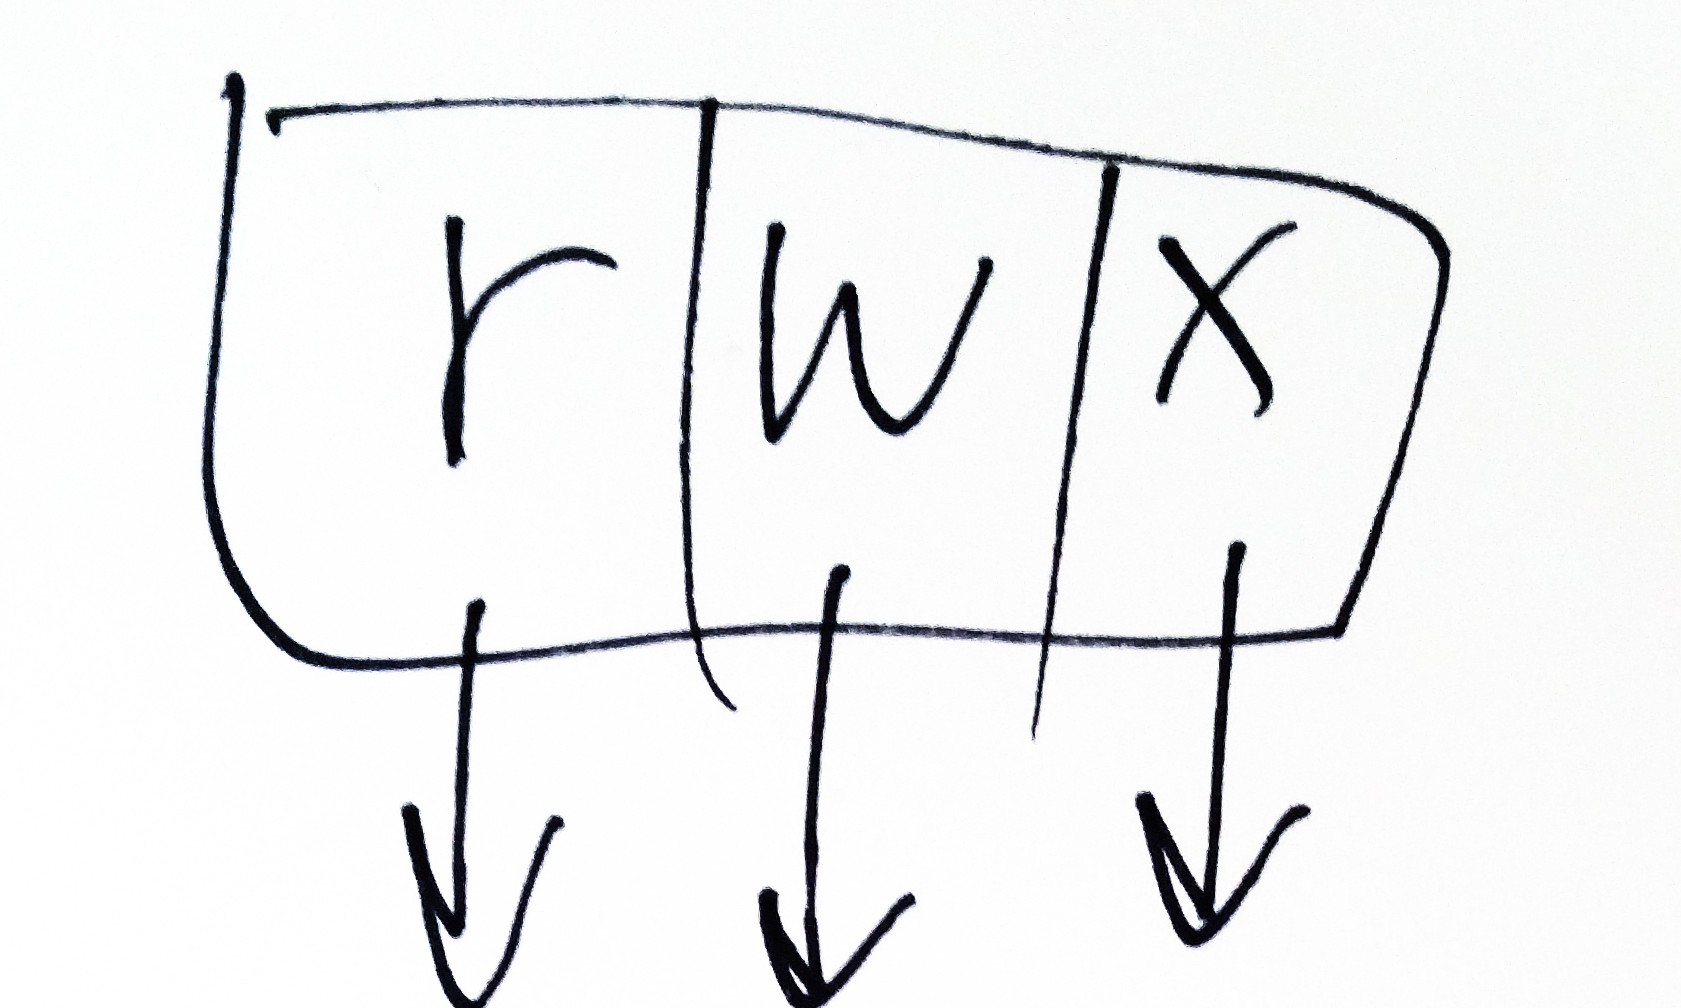 r w x